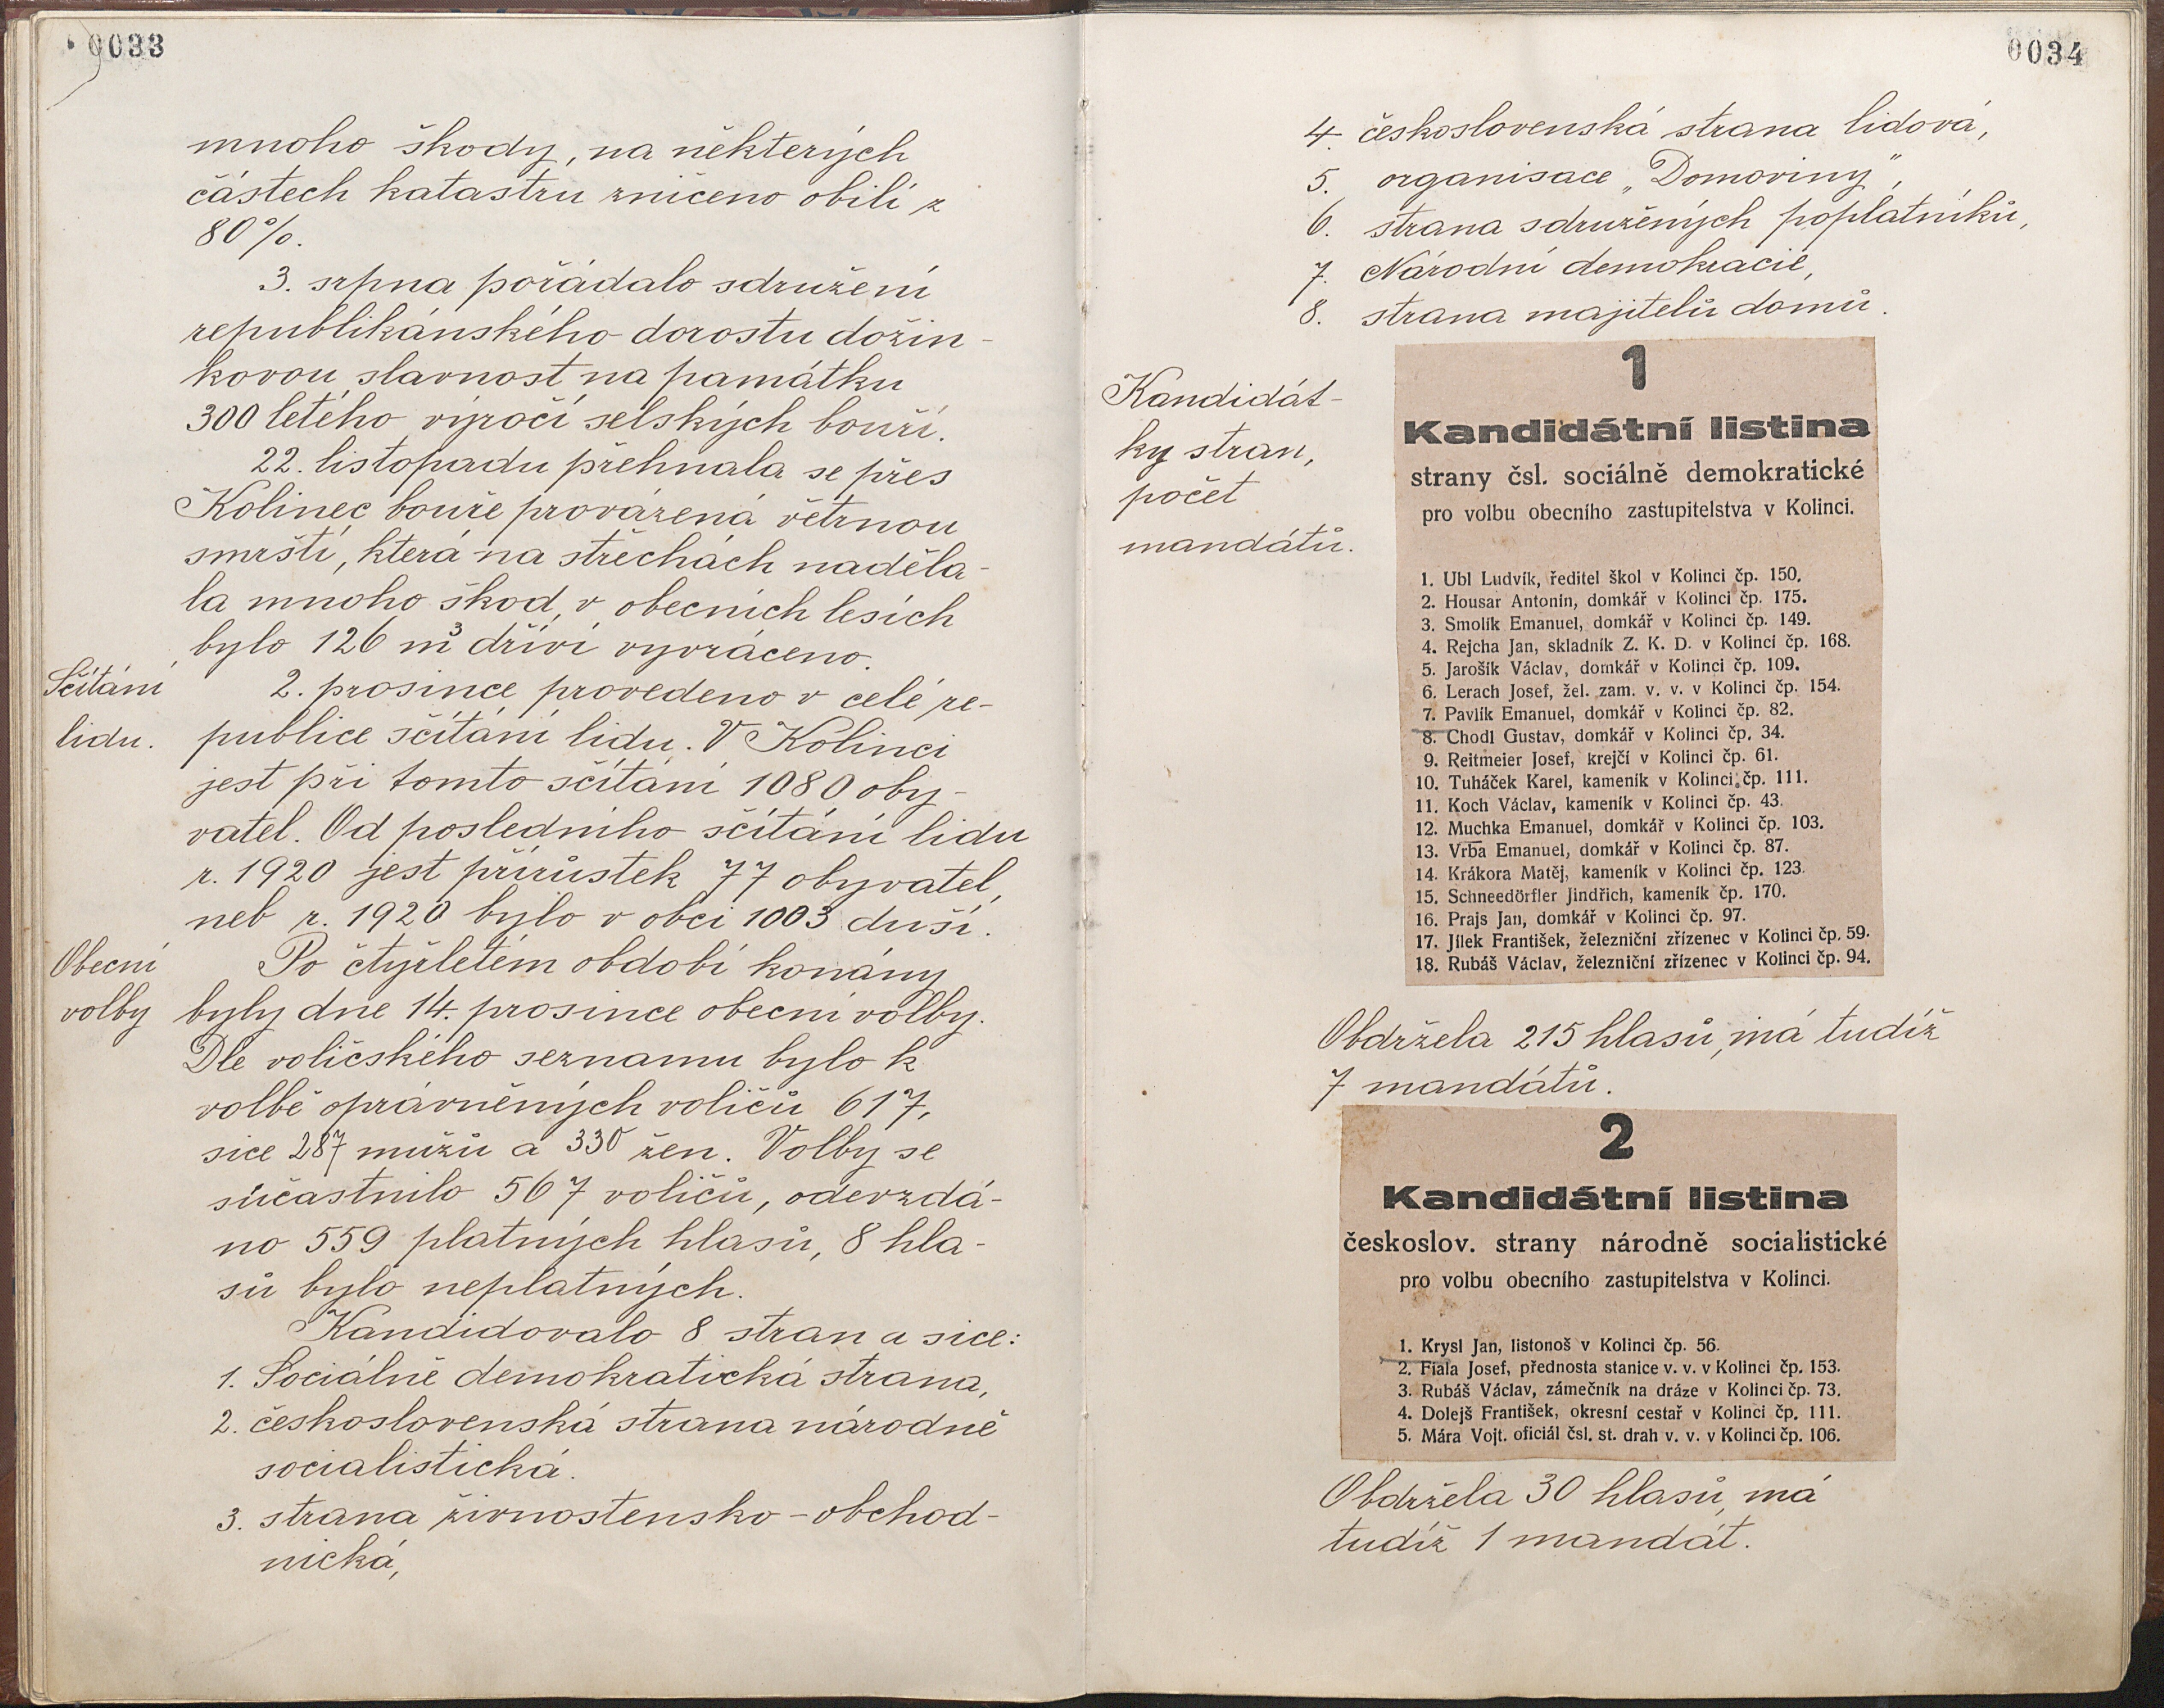 0033
mnoho škody, na některých
částech katastru zničeno obilí z
80%.
3. srpna pořádalo sdružení
republikánského dorostu dožin-
kovou slavnost na památku
300 letého výročí selských bouří.
22. listopadu přehnala se přes
Kolinec bouře provázená větrnou
smrští, která na střechách naděla-
la mnoho škod, v obecních lesích
bylo 126 m³ dříví vyvráceno.
Sčítání
lidu.
2. prosince provedeno v celé re-
publice sčítání lidu. V Kolinci
jest při tomto sčítání 1080 oby-
vatel. Od posledního sčítání lidu
r. 1920 jest přírůstek 77 obyvatel,
neb r. 1920 bylo v obci 1003 duší.
Obecní
volby
Po čtyřletém období konány
byly dne 14. prosince obecní volby.
Dle voličského seznamu bylo k
volbě oprávněných voličů 617,
sice 287 mužů a 330 žen. Volby se
súčastnilo 567 voličů, odevzdá-
no 559 platných hlasů, 8 hla-
sů bylo neplatných.
Kandidovalo 8 stran a sice:
1. Sociálně demokratická strana,
2. československá strana národně
socialistická.
3. strana živnostensko-obchod-
nická,
0034
4. československá strana lidová,
5. organisace „Domoviny",
6. strana sdružených poplatníků,
7. Národní demokracie,
8. strana majitelů domů.
Kandidát-
ky stran,
počet
mandátů.
1
Kandidátní listina
strany čsl. sociálně demokratické
pro volbu obecního zastupitelstva v Kolinci.
1. Ubl Ludvík, ředitel škol v Kolinci čp. 150.
2. Housar Antonin, domkář v Kolinci čp. 175.
3. Smolík Emanuel, domkář v Kolinci čp. 149.
4. Rejcha Jan, skladník Z. K. D. v Kolinci čp. 168.
5. Jarošík Václav, domkář v Kolinci čp. 109.
6. Lerach Josef, žel. zam. v. v. v Kolinci čp. 154.
7. Pavlík Emanuel, domkář v Kolinci čp. 82.
8. Chodl Gustav, domkář v Kolinci čp. 34.
9. Reitmeier Josef, krejčí v Kolinci čp. 61.
10. Tuháček Karel, kameník v Kolinci čp. 111.
11. Koch Václav, kameník v Kolinci čp. 43.
12. Muchka Emanuel, domkář v Kolinci čp. 103.
13. Vrba Emanuel, domkář v Kolinci čp. 87.
14. Krákora Matěj, kameník v Kolinci čp. 123.
15. Schneedörfler Jindřich, kameník čp. 170.
16. Prajs Jan, domkář v Kolinci čp. 97.
17. Jílek František, železniční zřízenec v Kolinci čp. 59.
18. Rubáš Václav, železniční zřízenec v Kolinci čp. 94.
Obdržela 215 hlasů, má tudíž
7 mandátů.
2
Kandidátní listina
českoslov. strany národně socialistické
pro volbu obecního zastupitelstva v Kolinci.
1. Krysl Jan, listonoš v Kolinci čp. 56.
2. Fiala Josef, přednosta stanice v. v. v Kolinci čp. 153.
3. Rubáš Václav, zámečník na dráze v Kolinci čp. 73.
4. Dolejš František, okresní cestař v Kolinci čp. 111.
5. Mára Vojt. oficiál čsl. st. drah v. v. v Kolinci čp. 106.
Obdržela 30 hlasů, má
tudíž 1 mandát.